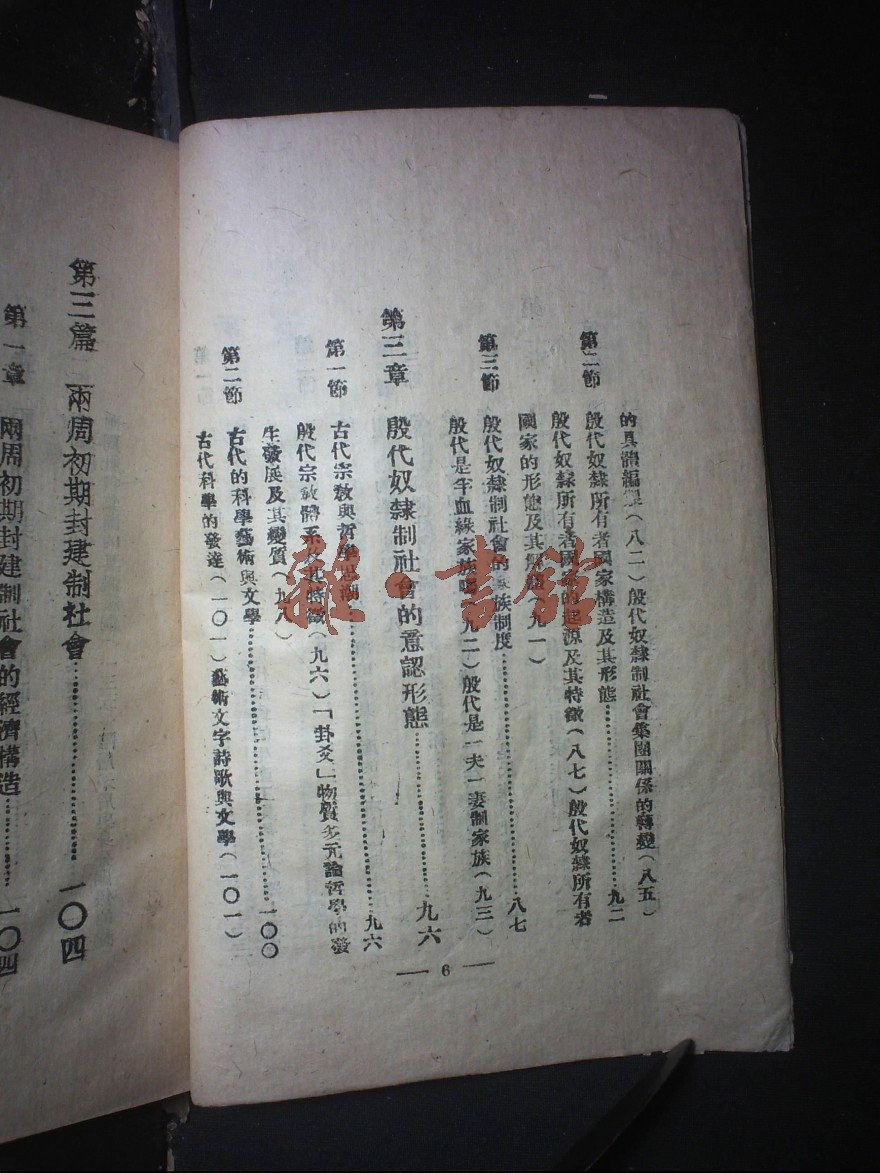 的具體編程（八二）殷代奴隸制社會集團關係的轉變（八五）
第二節 殷代奴隸所有者國家構造及其形態……九二
殷代奴隸所有者國家的起源及其特徵（八七）殷代奴隸所有者
國家的形態及其（九一）
第三節 殷代奴隸制社會的家族制度……八七
殷代是半血緣家族嗎（九二）殷代是一夫一妻制家族（九三）
第三章 殷代奴隸制社會的意認形態……九六
第一節 古代宗教與哲學思潮……九六
殷代宗教體系及其特徵（九六）「卦爻」物質多元論哲學的發
生發展及其變質（九八）
第二節 古代的科學藝術與文學……一〇〇
古代科學的發達（一〇一）藝術文字詩歌與文學（一〇一）
— 6 —
第三篇 兩周初期封建制社會……一〇四
第一章 兩周初期封建制社會的經濟構造……一〇四
雜·書館